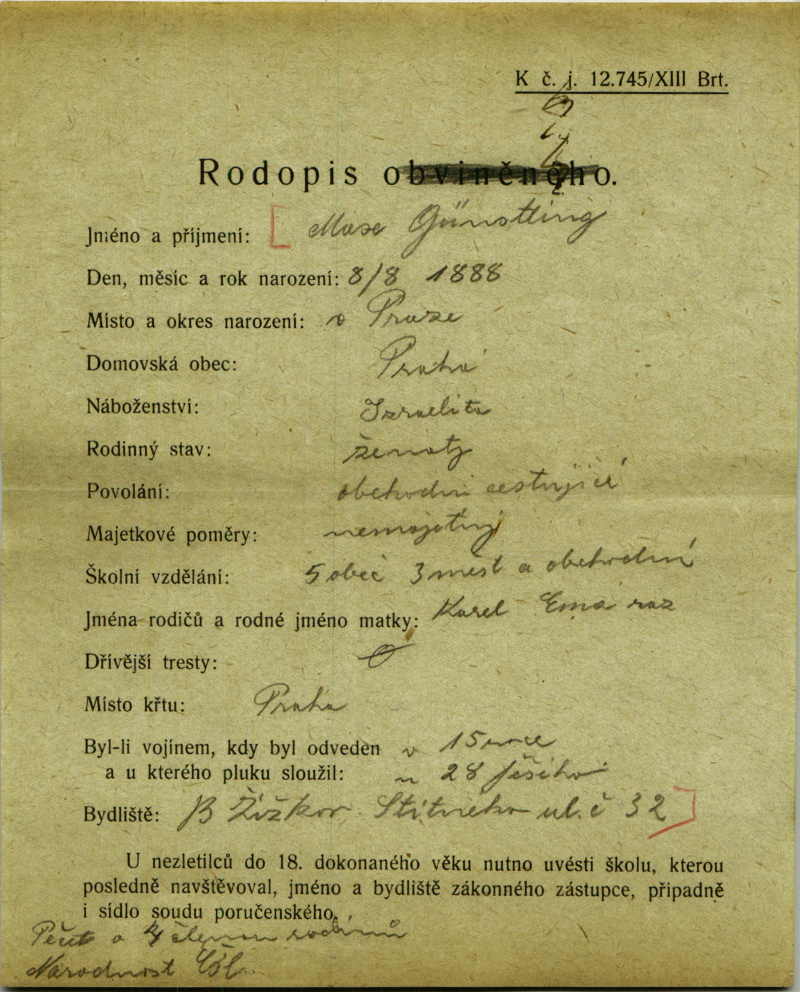 K č. j. 12.745/XIII Brt.
Rodopis obviněného.
Jméno a příjmení: Max Günstling
Den, měsíc a rok narození: 8/8 1888
Místo a okres narození: v Praze
Domovská obec: Praha
Náboženství: Izraelita
Rodinný stav: ženatý
Povolání: obchodní cestující
Majetkové poměry: nemajetný
Školní vzdělání: 5 obec 3 měst a obchodní
Jména rodičů a rodné jméno matky: Karel Ema roz
Dřívější tresty:
Místo křtu: Praha
Byl-li vojínem, kdy byl odveden v 15
a u kterého pluku sloužil: u 28 pěšího
Bydliště: Žižkov Štítného ul. č 32
U nezletilců do 18. dokonaného věku nutno uvésti školu, kterou
posledně navštěvoval, jméno a bydliště zákonného zástupce, případně
i sídlo soudu poručenského.
Péče o
Národnost